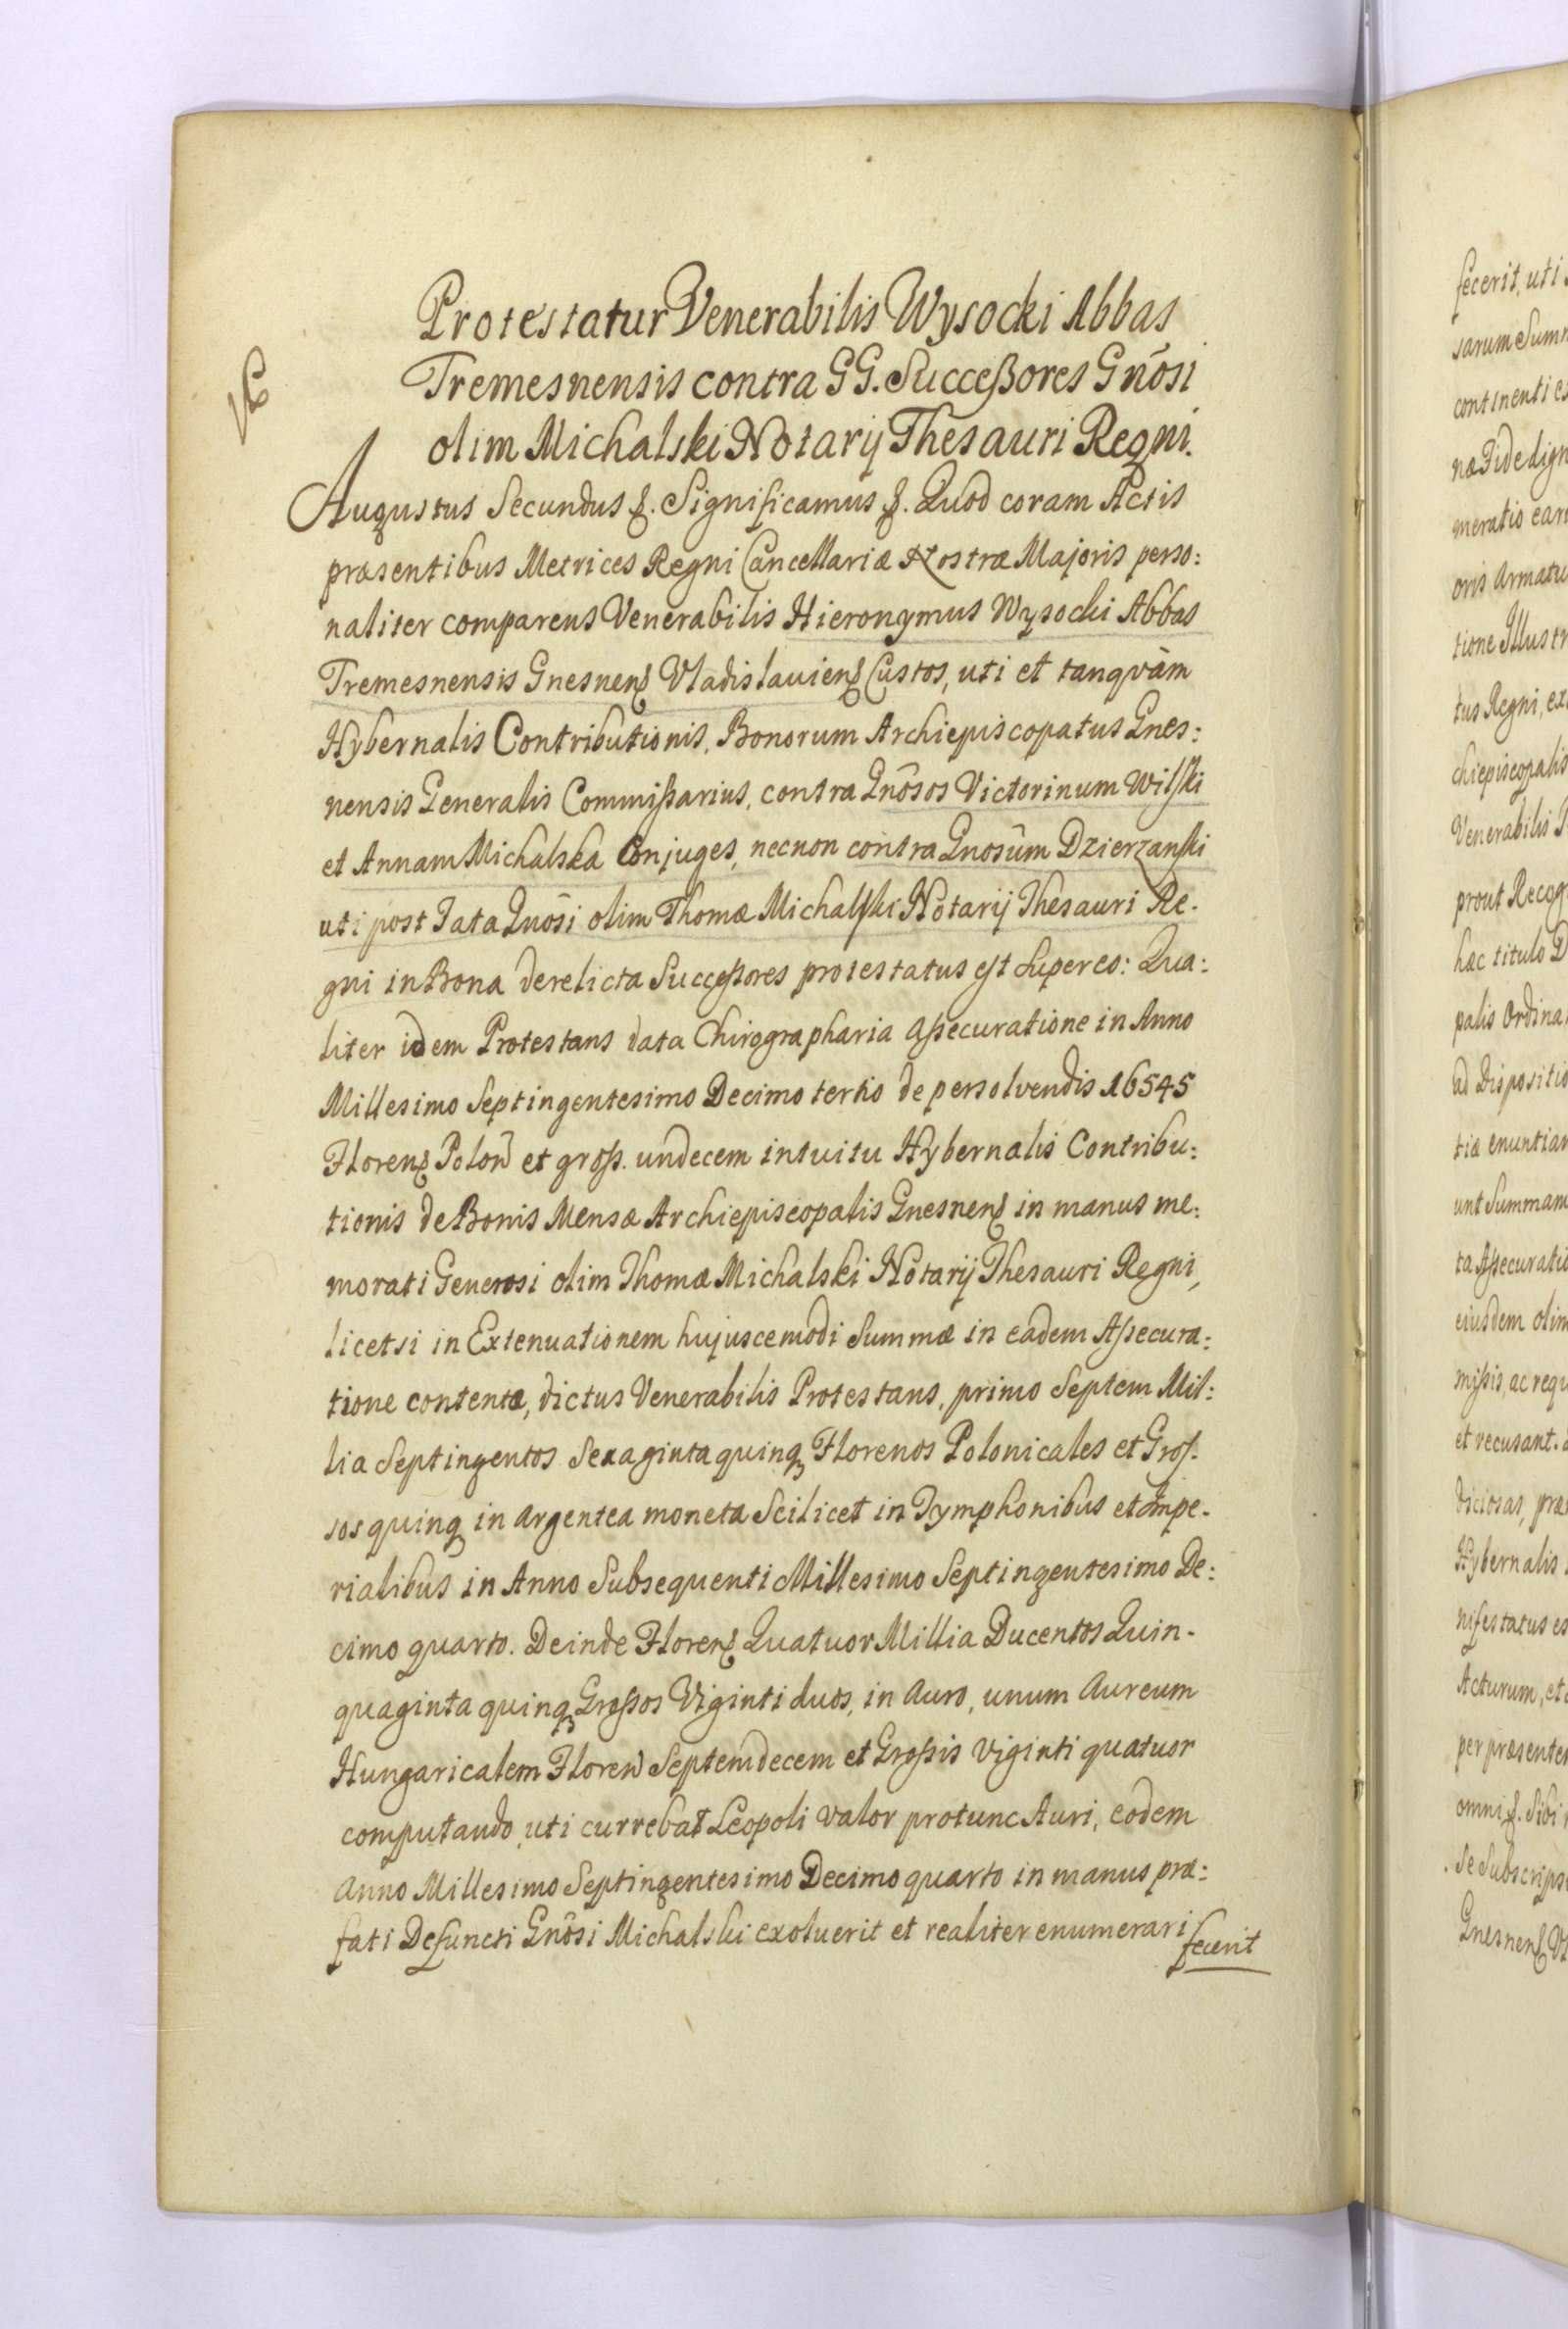 Protestatur Venerabilis Wysocki Abbas
Tremesnensis contra GG. Succeßores Gnōsi
olim Michalski Notarij Thesauri Regni.
Augustus Secundus &. Significamus &. Quod coram Actis
præsentibus Metrices Regni Cancellariæ Nostræ Majoris perso:
naliter comparens Venerabilis Hieronymus Wysocki Abbas
Tremesnensis Gnesnens Vladislauiens Custos, uti et tanqvàm
Hybernalis Contributionis, Bonorum Archiepiscopatus Gnes:
nensis Generalis Commißarius, contra Gnōsos Victorinum Wilski
et Annam Michalska Conjuges, necnon contra Gnosūm Dzierzanski
uti post Fata Gnōsi olim Thomæ Michalski Notarij Thesauri Re-
gni in Bona derelicta Succeßores protestatus est Super eo: Qua:
liter idem Protestans data Chirographaria Aßecuratione in Anno
Millesimo Septingentesimo Decimo tertio de persolvendis 16545
Florens Polon et groß. undecem intuitu Hybernalis Contribu:
tionis de Bonis Mensæ Archiepiscopalis Gnesnens in manus me:
morati Generosi olim Thomæ Michalski Notarij Thesauri Regni,
licetsi in Extenuationem hujuscemodi Summæ in eadem Aßecura:
tione contentæ, dictus Venerabilis Protestans, primo Septem Mil:
lia Septingentos Sexaginta quinq Florenos Polonicales et Gros-
sos quinq in Argentea moneta Scilicet in Tymphonibus et Impe-
rialibus in Anno Subsequenti Millesimo Septingentesimo De:
cimo quarto. Deinde Florens Quatuor Millia Ducentos Quin-
quaginta quinq Großos Viginti duos, in Auro, unum Aureum
Hungaricalem Floren Septemdecem et Großis Viginti quatuor
computando, uti currebat Leopoli valor protunc Auri, eodem
Anno Millesimo Septingentesimo Decimo quarto in manus præ:
fati Defuncti Gnōsi Michalski exoluerit et realiter enumerari
fecerit
fecerit, uti
sarum Sum
continenti
næ Fide dign
meratio ear
oris Armatu
tione Illustr
tus Regni, ex
chiepiscopalis
Venerabilis
prout Recog
hac titulo D
palis Ordina
ad Dispositio
tiæ enuntia
unt Summam
ta Aßecuratio
eiusdem olim
mißis, ac requ
et recusant.
diciosas, præ
Hybernalis
nifestatus es
Acturum, et
per præsente
omni &. Sibi
Se Subscrips
Gnesnens